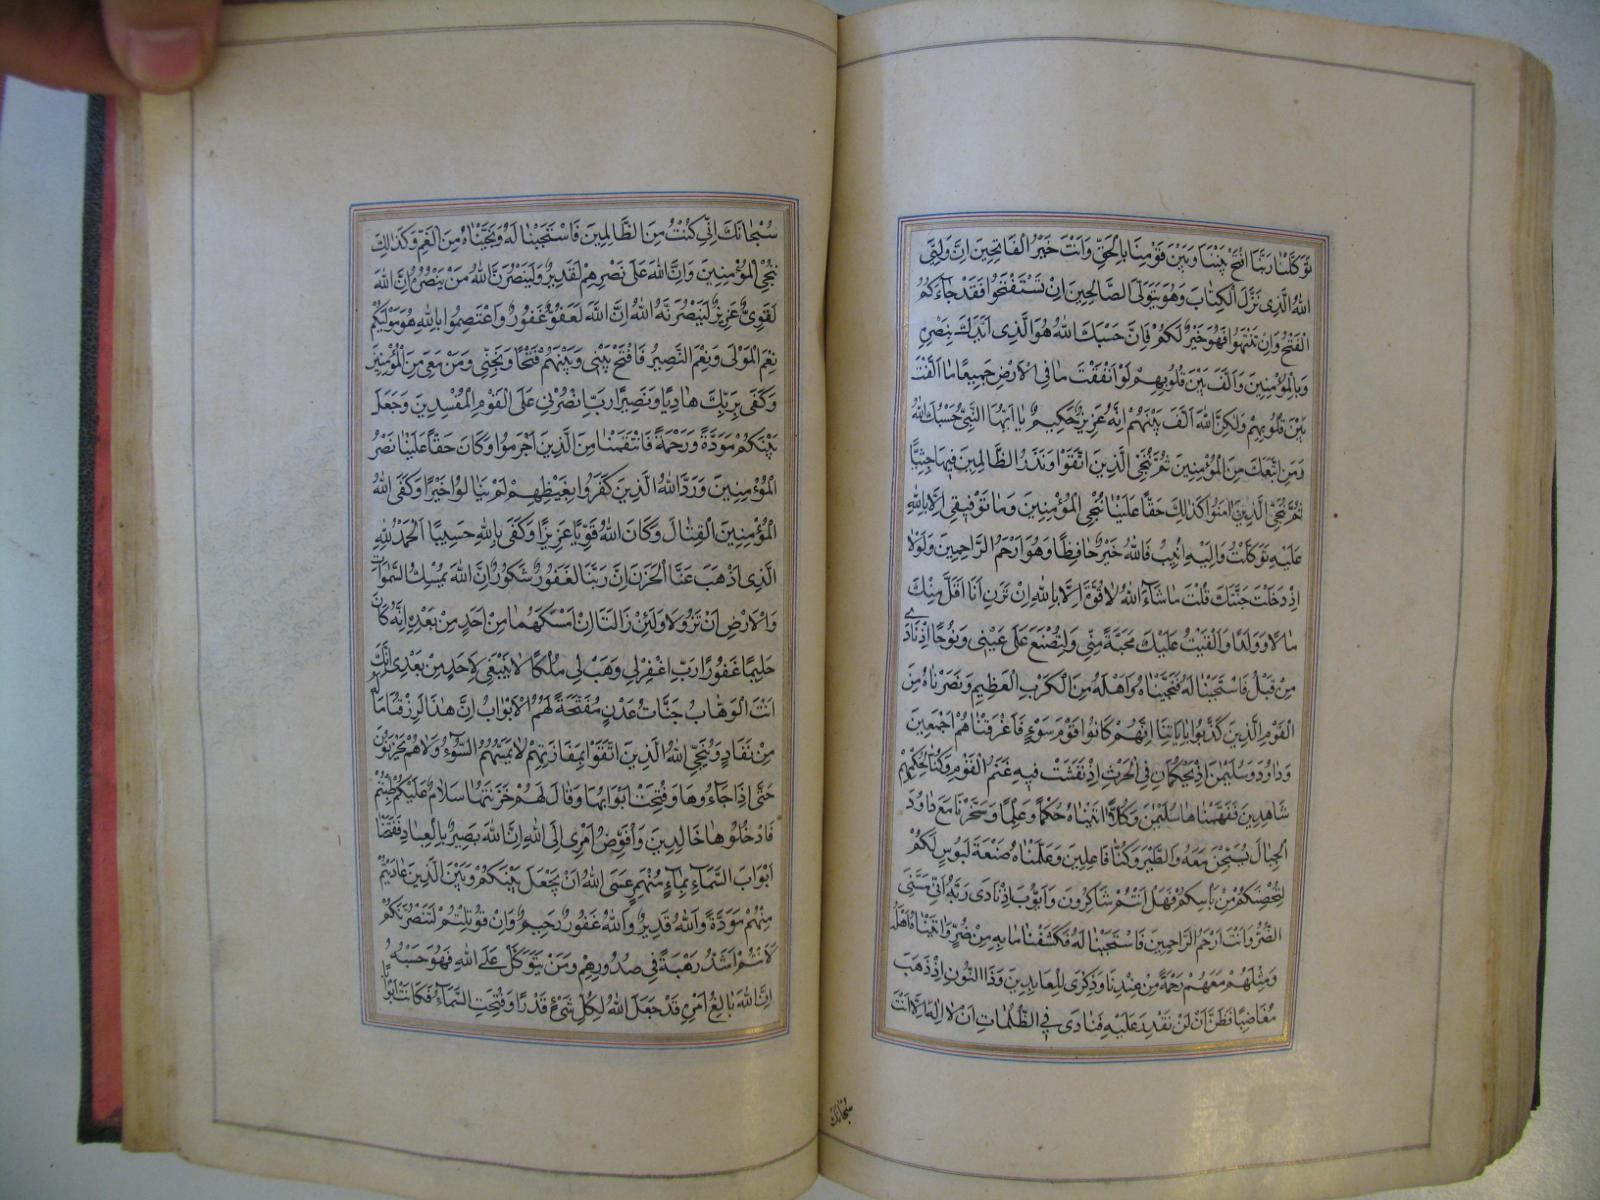 تَوَكَّلْنَا رَبَّنَا افْتَحْ بَيْنَنَا وَبَيْنَ قَوْمِنَا بِالْحَقِّ وَاَنْتَ خَيْرُ الْفَاتِحِينَ اِنَّ وَلِيِّيَ
اللّٰهُ الَّذِى نَزَّلَ الْكِتَابَ وَهُوَ يَتَوَلَّى الصَّالِحِينَ اِنْ تَسْتَفْتِحُوا فَقَدْ جَاۤءَكُمُ
الْفَتْحُ وَاِنْ تَنْتَهُوا فَهُوَ خَيْرٌ لَكُمْ فَاِنَّ حَسْبَكَ اللّٰهُ هُوَ الَّذِى اَيَّدَكَ بِنَصْرِهِ
وَبِالْمُؤْمِنِينَ وَاَلَّفَ بَيْنَ قُلُوبِهِمْ لَوْ اَنْفَقْتَ مَا فِى الْاَرْضِ جَمِيعًا مَا اَلَّفْتَ
بَيْنَ قُلُوبِهِمْ وَلٰكِنَّ اللّٰهَ اَلَّفَ بَيْنَهُمْ اِنَّهُ عَزِيزٌ حَكِيمٌ يَا اَيُّهَا النَّبِىُّ حَسْبُكَ اللّٰهُ
وَمَنِ اتَّبَعَكَ مِنَ الْمُؤْمِنِينَ ثُمَّ نُنَجِّى الَّذِينَ اتَّقَوْا وَنَذَرُ الظَّالِمِينَ فِيهَا جِثِيًّا
ثُمَّ نُنَجِّى الَّذِينَ اٰمَنُوا كَذٰلِكَ حَقًّا عَلَيْنَا نُنْجِى الْمُؤْمِنِينَ وَمَا تَوْفِيقِى اِلَّا بِاللّٰهِ
عَلَيْهِ تَوَكَّلْتُ وَاِلَيْهِ اُنِيبُ فَاللّٰهُ خَيْرٌ حَافِظًا وَهُوَ اَرْحَمُ الرَّاحِمِينَ وَلَوْلَا
اِذْ دَخَلْتَ جَنَّتَكَ قُلْتَ مَا شَاۤءَ اللّٰهُ لَا قُوَّةَ اِلَّا بِاللّٰهِ اِنْ تَرَنِ اَنَا اَقَلَّ مِنْكَ
مَالًا وَوَلَدًا وَاَلْقَيْتُ عَلَيْكَ مَحَبَّةً مِنِّى وَلِتُصْنَعَ عَلَى عَيْنِى وَنُوحًا اِذْ نَادَى
مِنْ قَبْلُ فَاسْتَجَبْنَا لَهُ فَنَجَّيْنَاهُ وَاَهْلَهُ مِنَ الْكَرْبِ الْعَظِيمِ وَنَصَرْنَاهُ مِنَ
الْقَوْمِ الَّذِينَ كَذَّبُوا بِاٰيَاتِنَا اِنَّهُمْ كَانُوا قَوْمَ سَوْءٍ فَاَغْرَقْنَاهُمْ اَجْمَعِينَ
وَدَاوُدَ وَسُلَيْمٰنَ اِذْ يَحْكُمَانِ فِى الْحَرْثِ اِذْ نَفَشَتْ فِيهِ غَنَمُ الْقَوْمِ وَكُنَّا لِحُكْمِهِمْ
شَاهِدِينَ فَفَهَّمْنَاهَا سُلَيْمٰنَ وَكُلًّا اٰتَيْنَاهُ حُكْمًا وَعِلْمًا وَسَخَّرْنَا مَعَ دَاوُدَ
الْجِبَالَ يُسَبِّحْنَ مَعَهُ وَالطَّيْرَ وَكُنَّا فَاعِلِينَ وَعَلَّمْنَاهُ صَنْعَةَ لَبُوسٍ لَكُمْ
لِتُحْصِنَكُمْ مِنْ بَأْسِكُمْ فَهَلْ اَنْتُمْ شَاكِرُونَ وَاَيُّوبَ اِذْ نَادَى رَبَّهُ اَنِّى مَسَّنِىَ
الضُّرُّ وَاَنْتَ اَرْحَمُ الرَّاحِمِينَ فَاسْتَجَبْنَا لَهُ فَكَشَفْنَا مَا بِهِ مِنْ ضُرٍّ وَاٰتَيْنَاهُ اَهْلَهُ
وَمِثْلَهُمْ مَعَهُمْ رَحْمَةً مِنْ عِنْدِنَا وَذِكْرَى لِلْعَابِدِينَ وَذَا النُّونِ اِذْ ذَهَبَ
مُغَاضِبًا فَظَنَّ اَنْ لَنْ نَقْدِرَ عَلَيْهِ فَنَادَى فِى الظُّلُمَاتِ اَنْ لَا اِلٰهَ اِلَّا اَنْتَ
سُبْحَانَكَ
سُبْحَانَكَ اِنِّى كُنْتُ مِنَ الظَّالِمِينَ فَاسْتَجَبْنَا لَهُ وَنَجَّيْنَاهُ مِنَ الْغَمِّ وَكَذٰلِكَ
نُنْجِى الْمُؤْمِنِينَ وَاِنَّ اللّٰهَ عَلَى نَصْرِهِمْ لَقَدِيرٌ وَلَيَنْصُرَنَّ اللّٰهُ مَنْ يَنْصُرُهُ اِنَّ اللّٰهَ
لَقَوِىٌّ عَزِيزٌ لَيَنْصُرَنَّهُ اللّٰهُ اِنَّ اللّٰهَ لَعَفُوٌّ غَفُورٌ وَاعْتَصِمُوا بِاللّٰهِ هُوَ مَوْلٰيكُمْ
نِعْمَ الْمَوْلَى وَنِعْمَ النَّصِيرُ فَافْتَحْ بَيْنِى وَبَيْنَهُمْ فَتْحًا وَنَجِّنِى وَمَنْ مَعِىَ مِنَ الْمُؤْمِنِينَ
وَكَفَى بِرَبِّكَ هَادِيًا وَنَصِيرًا رَبِّ انْصُرْنِى عَلَى الْقَوْمِ الْمُفْسِدِينَ وَجَعَلَ
بَيْنَكُمْ مَوَدَّةً وَرَحْمَةً فَانْتَقَمْنَا مِنَ الَّذِينَ اَجْرَمُوا وَكَانَ حَقًّا عَلَيْنَا نَصْرُ
الْمُؤْمِنِينَ وَرَدَّ اللّٰهُ الَّذِينَ كَفَرُوا بِغَيْظِهِمْ لَمْ يَنَالُوا خَيْرًا وَكَفَى اللّٰهُ
الْمُؤْمِنِينَ الْقِتَالَ وَكَانَ اللّٰهُ قَوِيًّا عَزِيزًا وَكَفَى بِاللّٰهِ حَسِيبًا اَلْحَمْدُ لِلّٰهِ
الَّذِى اَذْهَبَ عَنَّا الْحَزَنَ اِنَّ رَبَّنَا لَغَفُورٌ شَكُورٌ اِنَّ اللّٰهَ يُمْسِكُ السَّمٰوَاتِ
وَالْاَرْضَ اَنْ تَزُولَا وَلَئِنْ زَالَتَا اِنْ اَمْسَكَهُمَا مِنْ اَحَدٍ مِنْ بَعْدِهِ اِنَّهُ كَانَ
حَلِيمًا غَفُورًا رَبِّ اغْفِرْ لِى وَهَبْ لِى مُلْكًا لَا يَنْبَغِى لِاَحَدٍ مِنْ بَعْدِى اِنَّكَ
اَنْتَ الْوَهَّابُ جَنَّاتُ عَدْنٍ مُفَتَّحَةً لَهُمُ الْاَبْوَابُ اِنَّ هٰذَا لَرِزْقُنَا مَا لَهُ
مِنْ نَفَادٍ وَيُنَجِّى اللّٰهُ الَّذِينَ اتَّقَوْا بِمَفَازَتِهِمْ لَا يَمَسُّهُمُ السُّوۤءُ وَلَا هُمْ يَحْزَنُونَ
حَتَّى اِذَا جَاۤءُوهَا وَفُتِحَتْ اَبْوَابُهَا وَقَالَ لَهُمْ خَزَنَتُهَا سَلَامٌ عَلَيْكُمْ طِبْتُمْ
فَادْخُلُوهَا خَالِدِينَ وَاُفَوِّضُ اَمْرِى اِلَى اللّٰهِ اِنَّ اللّٰهَ بَصِيرٌ بِالْعِبَادِ فَفَتَحْنَا
اَبْوَابَ السَّمَاۤءِ بِمَاۤءٍ مُنْهَمِرٍ عَسَى اللّٰهُ اَنْ يَجْعَلَ بَيْنَكُمْ وَبَيْنَ الَّذِينَ عَادَيْتُمْ
مِنْهُمْ مَوَدَّةً وَاللّٰهُ قَدِيرٌ وَاللّٰهُ غَفُورٌ رَحِيمٌ وَاِنْ قُوتِلْتُمْ لَنَنْصُرَنَّكُمْ
لَاَنْتُمْ اَشَدُّ رَهْبَةً فِى صُدُورِهِمْ وَمَنْ يَتَوَكَّلْ عَلَى اللّٰهِ فَهُوَ حَسْبُهُ
اِنَّ اللّٰهَ بَالِغُ اَمْرِهِ قَدْ جَعَلَ اللّٰهُ لِكُلِّ شَىْءٍ قَدْرًا وَفُتِحَتِ السَّمَاۤءُ فَكَانَتْ اَبْوَابًا